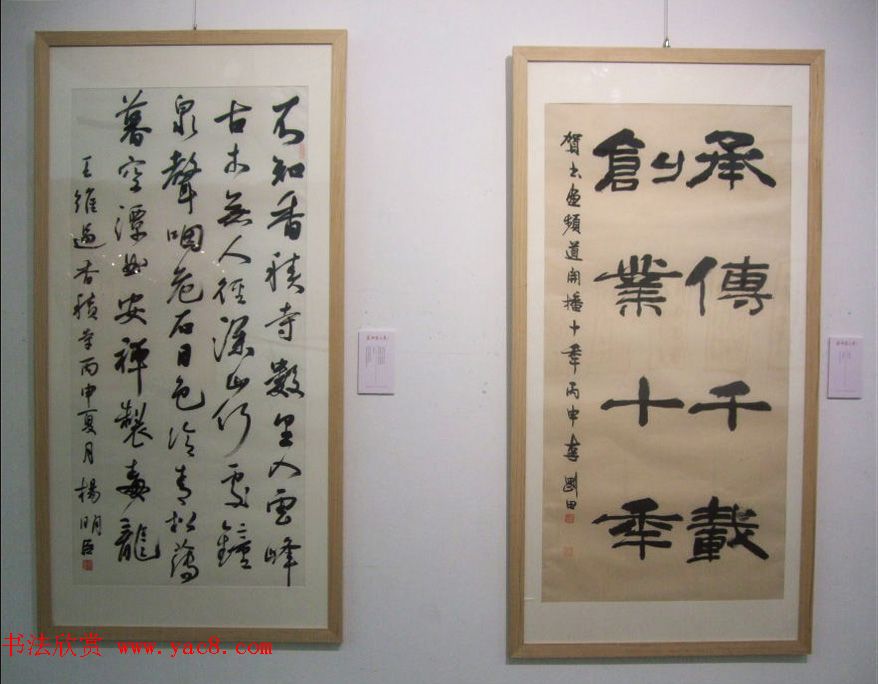 不知香積寺數里入雲峰
古木無人徑深山何處鐘
泉聲咽危石日色冷青松薄
暮空潭曲安禪製毒龍
王維過香積寺丙申夏月楊明臣
承傳千載
創業十秊
賀書畫頻道開播十年丙申
书法欣赏 www.yac8.com